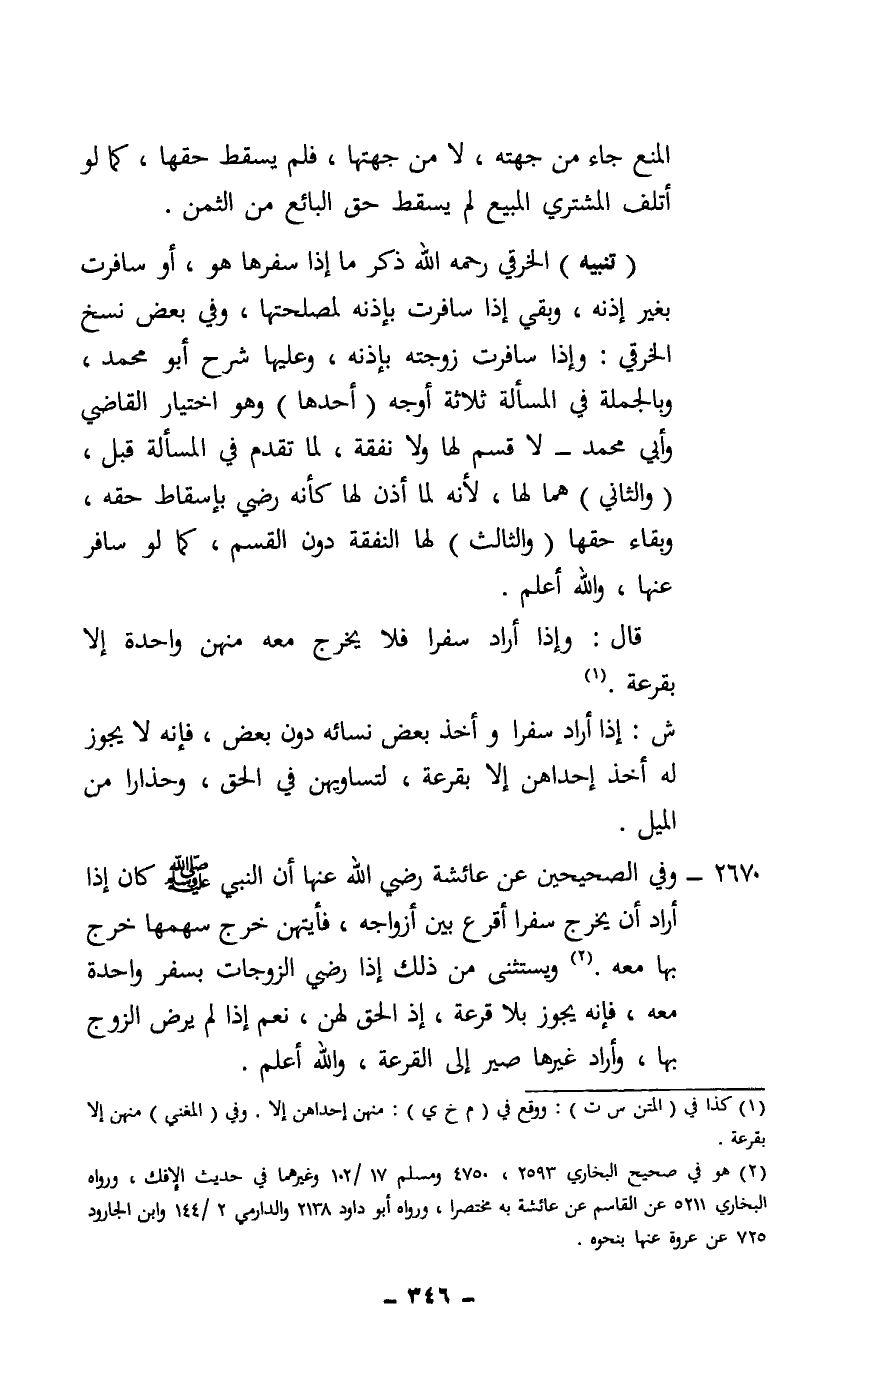 المنع جاء من جهته ، لا من جهتها ، فلم يسقط حقها ، كما لو
أتلف المشتري المبيع لم يسقط حق البائع من الثمن .
( تنبيه ) الخرقي رحمه الله ذكر ما إذا سفرها هو ، أو سافرت
بغير إذنه ، وبقي إذا سافرت بإذنه لمصلحتها ، وفي بعض نسخ
الخرقي : وإذا سافرت زوجته بإذنه ، وعليها شرح أبو محمد ،
وبالجملة في المسألة ثلاثة أوجه ( أحدها ) وهو اختيار القاضي
وأبي محمد ــ لا قسم لها ولا نفقة ، لما تقدم في المسألة قبل ،
( والثاني ) هما لها ، لأنه لما أذن لها كأنه رضي بإسقاط حقه ،
وبقاء حقها ( والثالث ) لها النفقة دون القسم ، كما لو سافر
عنها ، والله أعلم .
قال : وإذا أراد سفرا فلا يخرج معه منهن واحدة إلا
بقرعة .(١)
ش : إذا أراد سفرا و أخذ بعض نسائه دون بعض ، فإنه لا يجوز
له أخذ إحداهن إلا بقرعة ، لتساويهن في الحق ، وحذارا من
الميل .
٢٦٧٠ ــ وفي الصحيحين عن عائشة رضي الله عنها أن النبي ﷺ كان إذا
أراد أن يخرج سفرا أقرع بين أزواجه ، فأيتهن خرج سهمها خرج
بها معه .(٢) ويستثنى من ذلك إذا رضي الزوجات بسفر واحدة
معه ، فإنه يجوز بلا قرعة ، إذ الحق لهن ، نعم إذا لم يرض الزوج
بها ، وأراد غيرها صير إلى القرعة ، والله أعلم .
(١) كذا في ( المتن س ت ) : ووقع في ( م خ ي ) : منهن إحداهن إلا . وفي ( المغني ) منهن إلا
بقرعة .
(٢) هو في صحيح البخاري ٢٥٩٣ ، ٤٧٥٠ ومسلم ١٧ /١٠٢ وغيرهما في حديث الإفك ، ورواه
البخاري ٥٢١١ عن القاسم عن عائشة به مختصرا ، ورواه أبو داود ٢١٣٨ والدارمي ٢ /١٤٤ وابن الجارود
٧٢٥ عن عروة عنها بنحوه .
ــ ٣٤٦ ــ